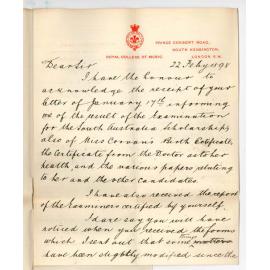 PRINCE CONSORT ROAD,
SOUTH KENSINGTON,
LONDON S.W.
ROYAL COLLEGE OF MUSIC
22 Feby 1898
Dear Sir
I have the honour to
acknowledge the receipt of your
letter of January 17th informing
me of the result of the Examination
for the South Australian Scholarship,
also of Miss Corvan's Birth Certificate,
the Certificate from the Doctor as to her
health, and the various papers relating
to her and the other candidates.
I have also received the report
of the Examiners certified by yourself.
I dare say you will have
noticed when you received the forms
which I sent out that some things
have been slightly modified since the